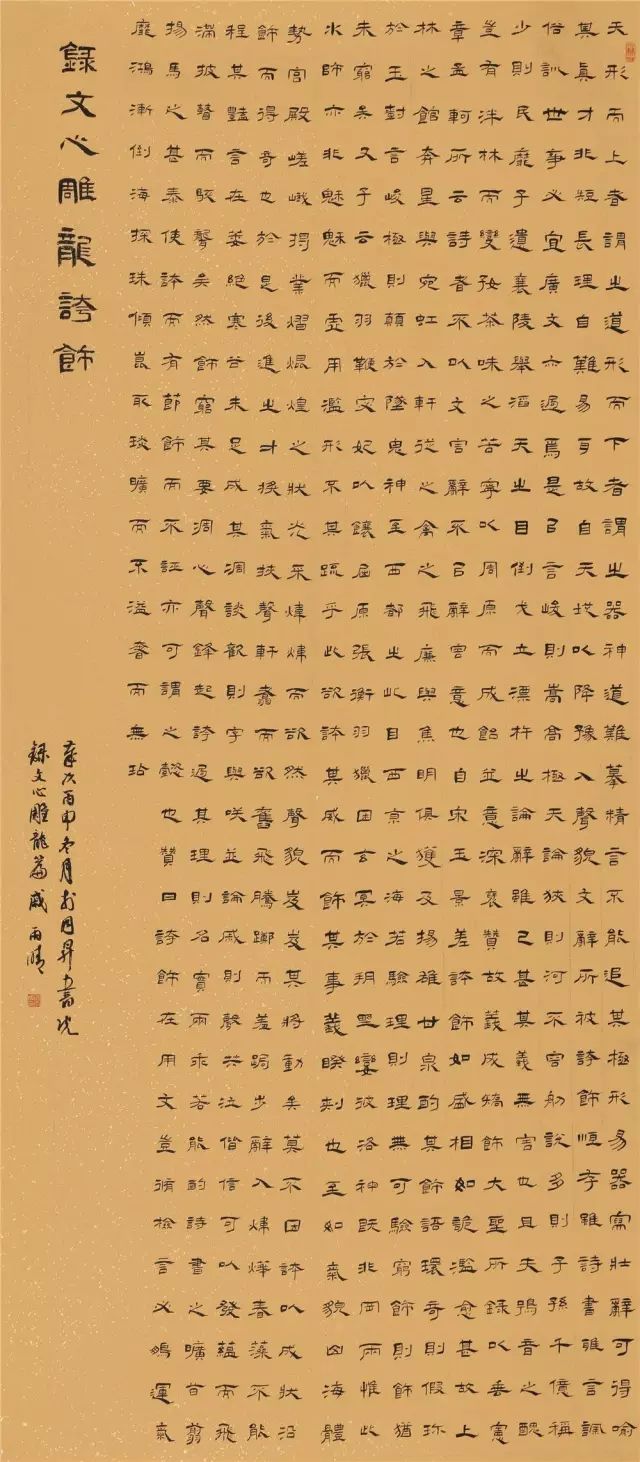 天形而上者謂之道形而下者謂之器神道難摹精言不能追其極形易器寫壯辭可得喻
其真才非短長理自難易耳故自天地以降豫入聲貌文辭所被誇飾恒存雖詩書雅言諷
俗訓世事必宜廣文亦過焉是以言峻則嵩高極天論狹則河不容舠說多則子孫千億稱
少則民靡孑遺襄陵舉滔天之目倒戈立漂杵之論辭雖已甚其義無害也且夫鴞音之醜
豈有泮林而變好荼味之苦寧以周原而成飴並意深褒贊故義成矯飾大聖所錄以垂憲
章孟軻所云詩者不以文害辭不以辭害意也自宋玉景差誇飾如盛相如詭濫愈甚故上
林之館奔星與宛虹入軒從之禽之飛廉與焦明俱獲及揚雄甘泉酌其飾語環奇則假珍
於玉封言峻極則顛於墜鬼神至西都之比目西京之海若驗理則理無可驗窮飾則飾猶
未窮矣又子云獵羽鞭宓妃以饟屈原張衡羽獵困玄冥於朔野孌彼洛神既非罔兩惟此
水師亦非魑魅而虛用濫形不其疏乎此欲誇其威而飾其事義睽剌也至如氣貌山海體
勢宮殿嵯峨揭業熠焜煌之狀光采煒煒而欲然聲貌岌岌其將動矣莫不因誇以成狀沿
飾而得奇也於是後進之才獎氣挾聲軒翥而欲奮飛騰擲而羞跼步辭入煒燁春藻不能
程其豔言在萎絕寒谷未足成其凋談歡則字與咲並論戚則聲共泣偕信可以發蘊而飛
滯披瞽而駭聾矣然飾窮其要凋心聲鋒起誇過其理則名實兩乖若能酌詩書之曠旨翦
揚馬之甚泰使誇而有節飾而不誣亦可謂之懿也贊曰誇飾在用文豈循檢言必鵬運氣
靡鴻漸倒海探珠傾崑取琰曠而不溢奢而無玷
錄文心雕龍誇飾
歲次丙申冬月於月昇書院
錄文心雕龍篇戚雨晴